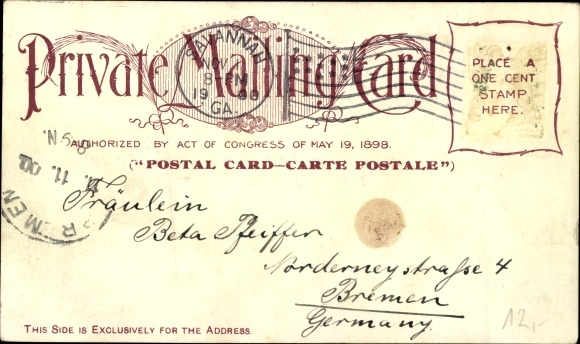 Private Mailing Card
SAVANNAH
NOV
8-PM
1900
GA.
PLACE A
ONE CENT
STAMP
HERE.
AUTHORIZED BY ACT OF CONGRESS OF MAY 19, 1898.
("POSTAL CARD—CARTE POSTALE")
BREMEN
11. 00.
Fräulein
Beta Pfeiffer
Norderneystraße 4
Bremen
Germany.
THIS SIDE IS EXCLUSIVELY FOR THE ADDRESS.
12,-